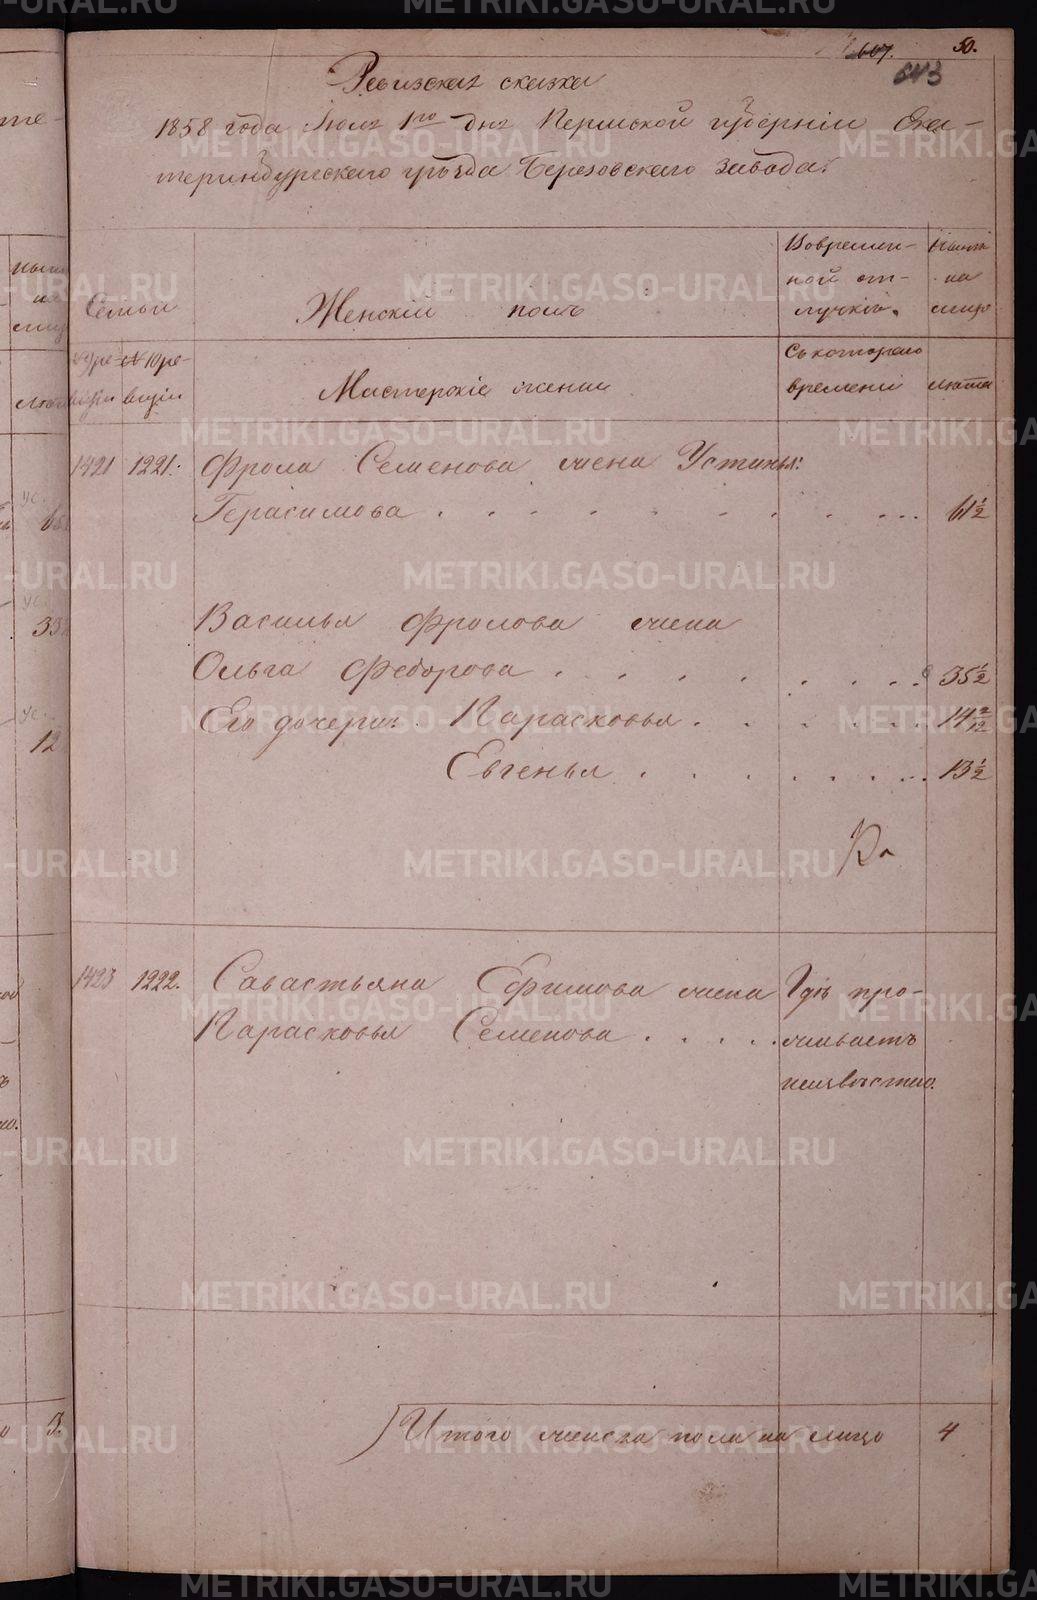 607. 50.
643
Ревизская сказка
1858 года Июля 1го дня Пермской губернiи Ека-
теринбургскаго уѣзда Березовскаго завода.
Семьи
Женскiй полъ
Во времен-
ной от-
лучкѣ.
Нынѣ
на
лицо
№ 9 ре-
визiи
№ 10 ре-
визiи
Мастерскiе жены
Съ котораго
времени
лѣта
1421 1221. Фрола Семенова жена Устинья
Герасимова . . . . . . . . . . 61½
Василья Фролова жена
Ольга Федорова . . . . . . . . . 35½
Его дочери: Парасковья . . . . . . . 14 2/12
Евгенья . . . . . . . . 13½
1423 1222. Савастьяна Ефимова жена Гдѣ про-
Парасковья Семенова . . . . . живаетъ
неизвѣстно.
Итого женска пола на лицо 4
METRIKI.GASO-URAL.RU